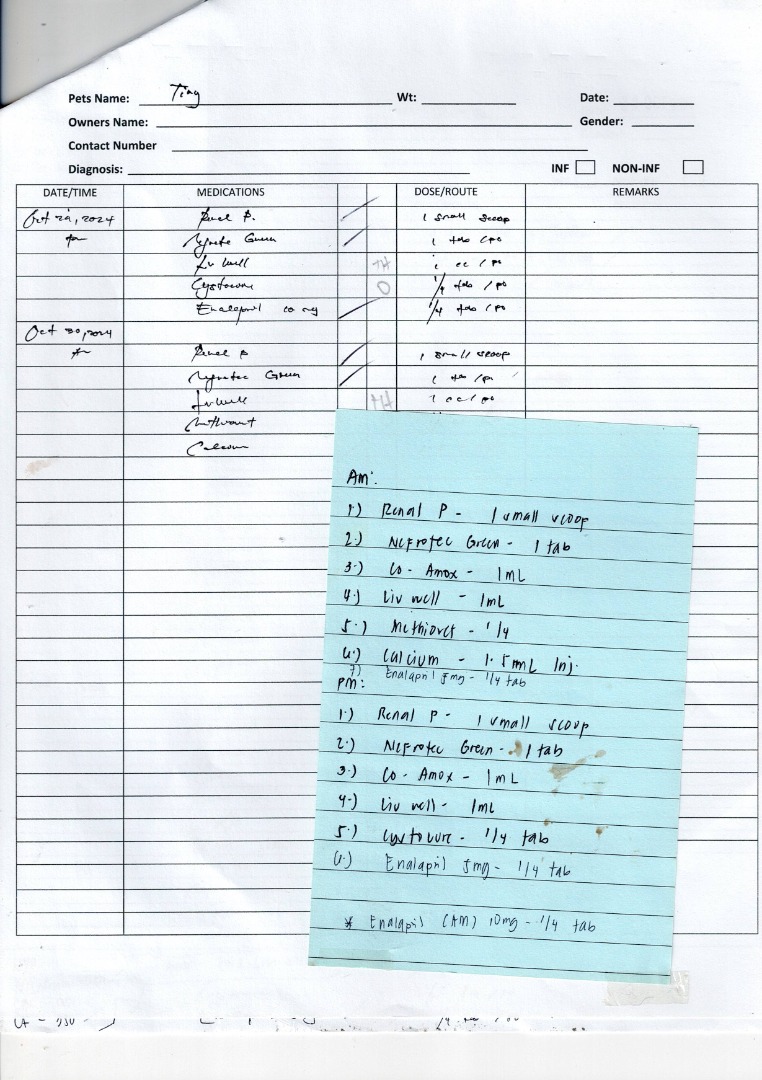 Pets Name: Tiny Wt: Date:
Owners Name: Gender:
Contact Number
Diagnosis: INF NON-INF
DATE/TIME MEDICATIONS DOSE/ROUTE REMARKS
Oct 29, 2024 Renal P. 1 small scoop
Green 1 tab / po
Liv well 1 cc / po
Cystocure 1/4 tab / po
Enalapril 1/4 tab / po
Oct 30, 2024
Renal P 1 small scoop
Nefrotec Green 1 tab / po
Liv well 1 cc / po
Methiovet
Calcium
Am:
1.) Renal P - 1 small scoop
2.) Nefrotec Green - 1 tab
3.) Co - Amox - 1mL
4.) Liv well - 1mL
5.) Methiovet - 1/4
6.) Calcium - 1.5mL Inj.
7) Enalapril 5mg - 1/4 tab
PM:
1.) Renal P - 1 small scoop
2.) Nefrotec Green - 1 tab
3.) Co - Amox - 1mL
4.) Liv well - 1mL
5.) Cystocure - 1/4 tab
6.) Enalapril 5mg - 1/4 tab
* Enalapril (AM) 10mg - 1/4 tab